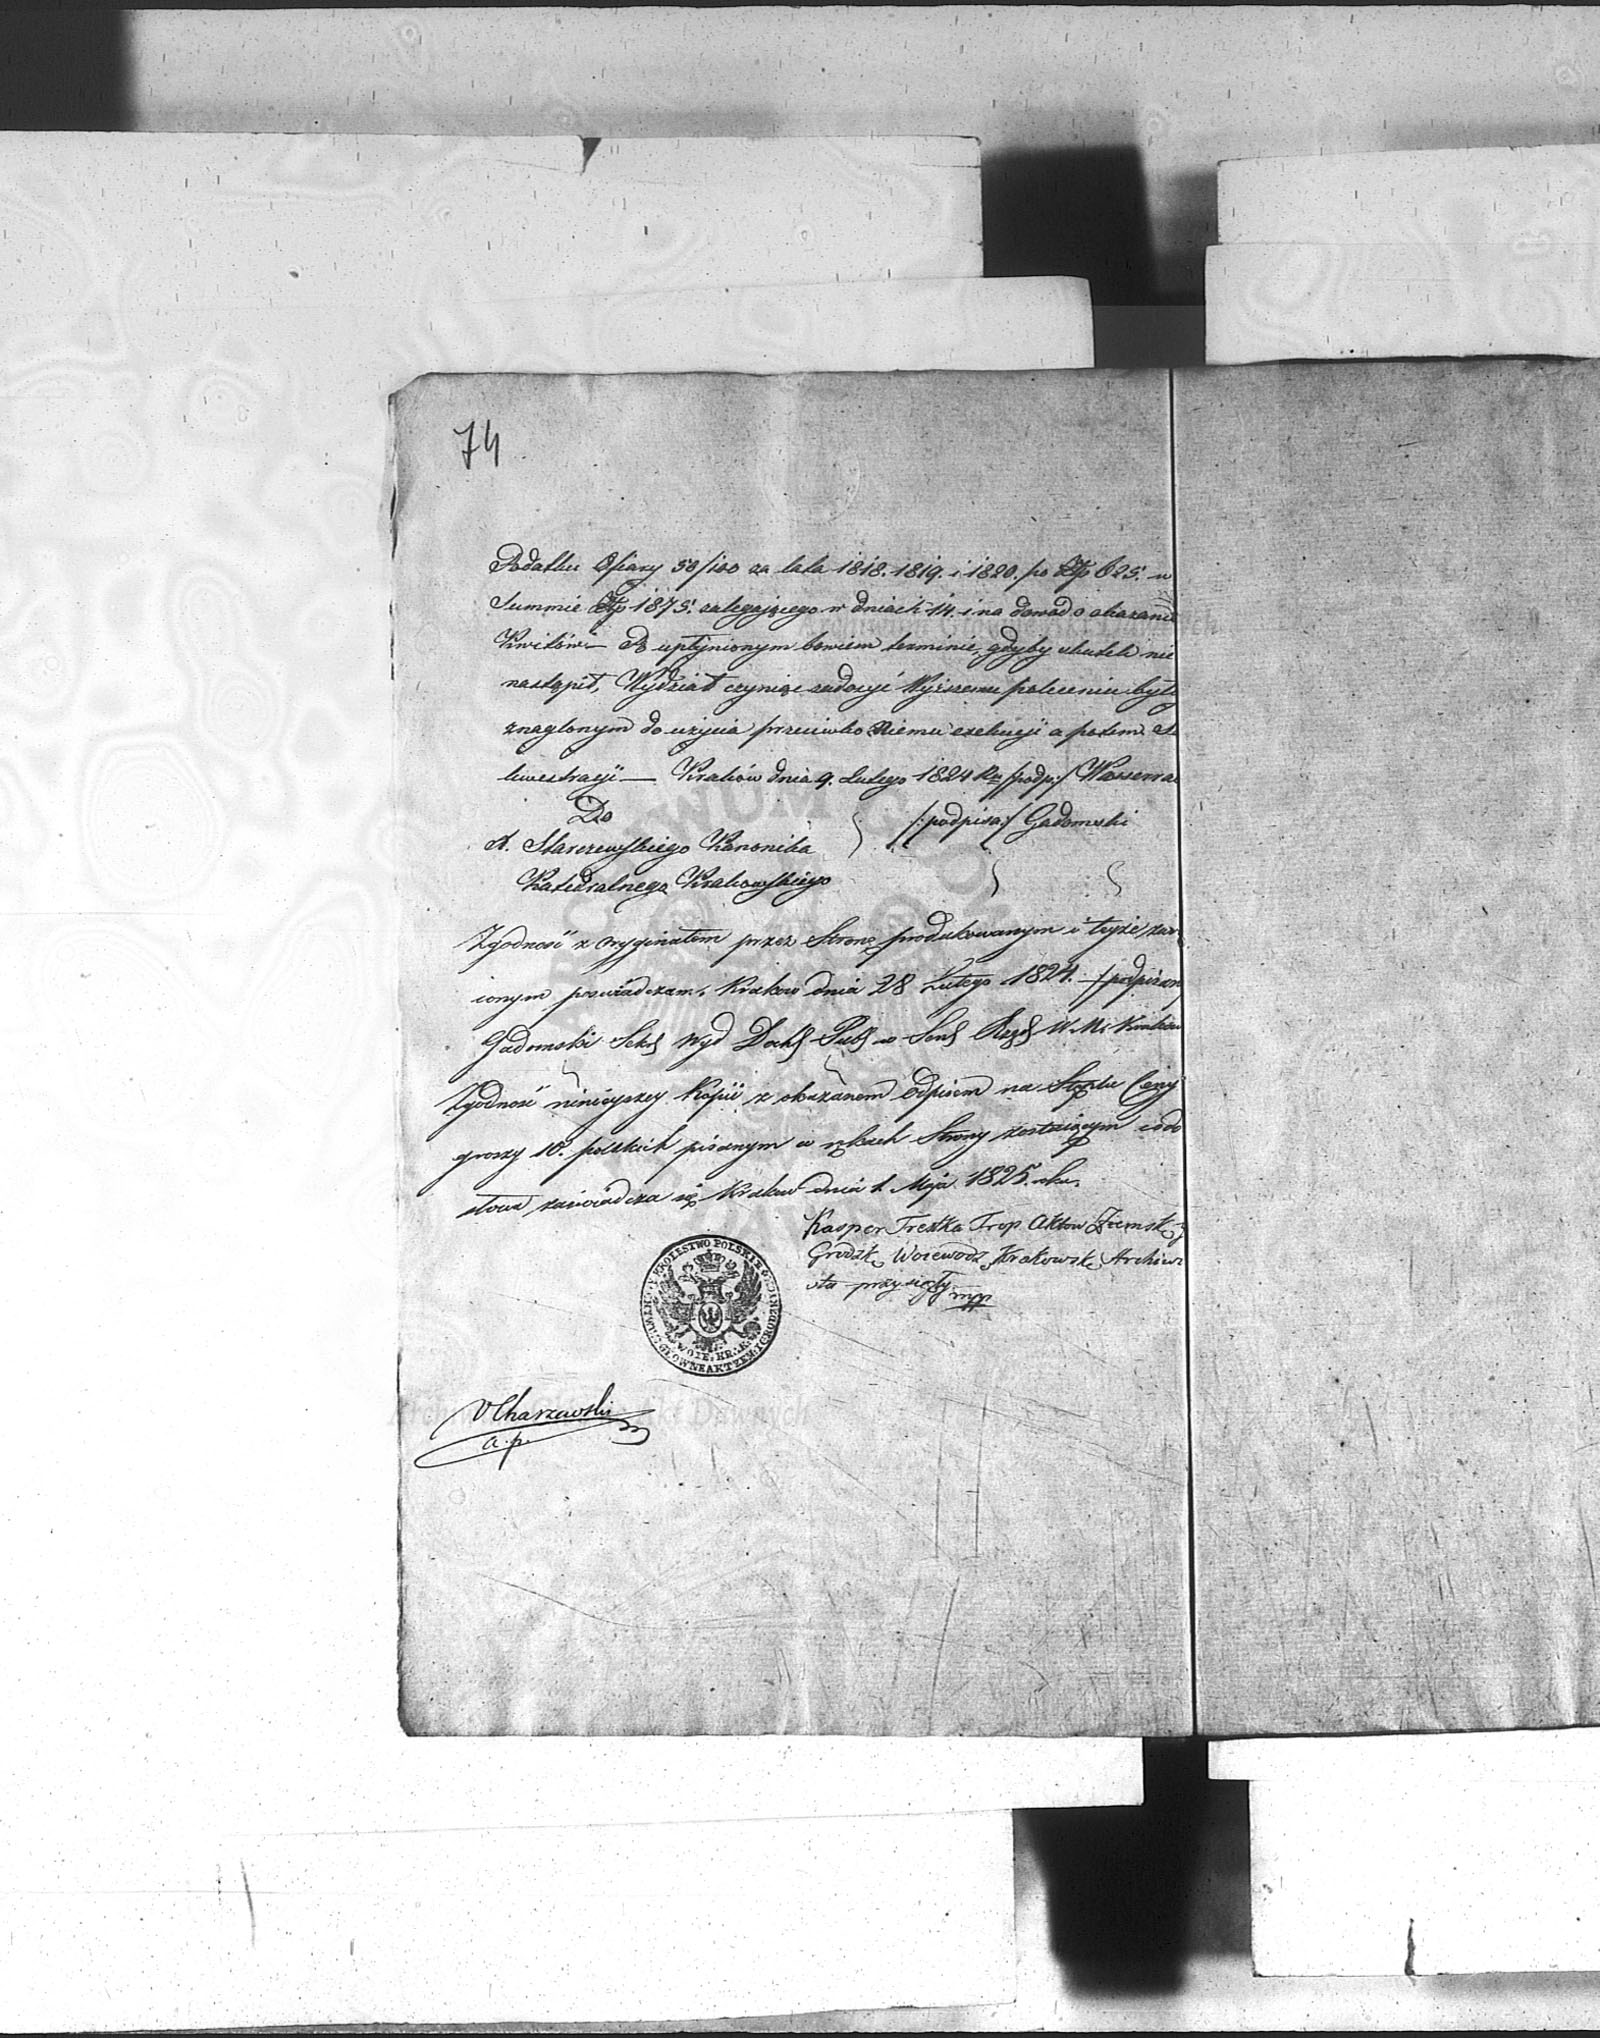 74
Podatku Ofiary 50/100 za lata 1818. 1819. i 1820. po Złp 625. w
Summie Złp 1875. zalegaiącego w dniach 14. i na dowod okazania
Kwitów — Po upłynionym bowiem terminie, gdyby skutek nie
nastąpił, Wydział czyniąc zadosyć Wyższemu poleceniu byłby
znaglonym do użycia przeciwko Niemu exekucyi a potem Se
kwestracyi — Kraków dnia 9. Lutego 1824 Ru /:podp:/
Do /:podpisa:/ Gadomski
X. Starzewskiego Kanonika
Katedralnego Krakowskiego
Zgodność z oryginałem przez Stronę produkowanym i teyże
conym poswiadczam, Krakow dnia 28 Lutego 1824. /:podpisany
Gadomski Sekr Wyd Doch Publ w Sen Rządz W. M. Krakowa
Zgodność ninieyszey Kopii z okazanem Odpisem na Stęplu Ceny
groszy 10. polskich pisanym w rękach Strony zostaiącym co do
słowa zaświadcza się Krakow dnia 1. Maja 1825. roku.
Kasper Treżka Aktow Ziemsk. y
Grodzk. Woiewodz. Krakowsk. Archiwi
sta przysięgły mpp
KROLESTWO POLSKIE
ARCHIWUM GŁOWNE AKT ZIEM: I GRODZKICH
WOIE: KRAK:
VCharzewski
a. p.
Archiwum Akt Dawnych